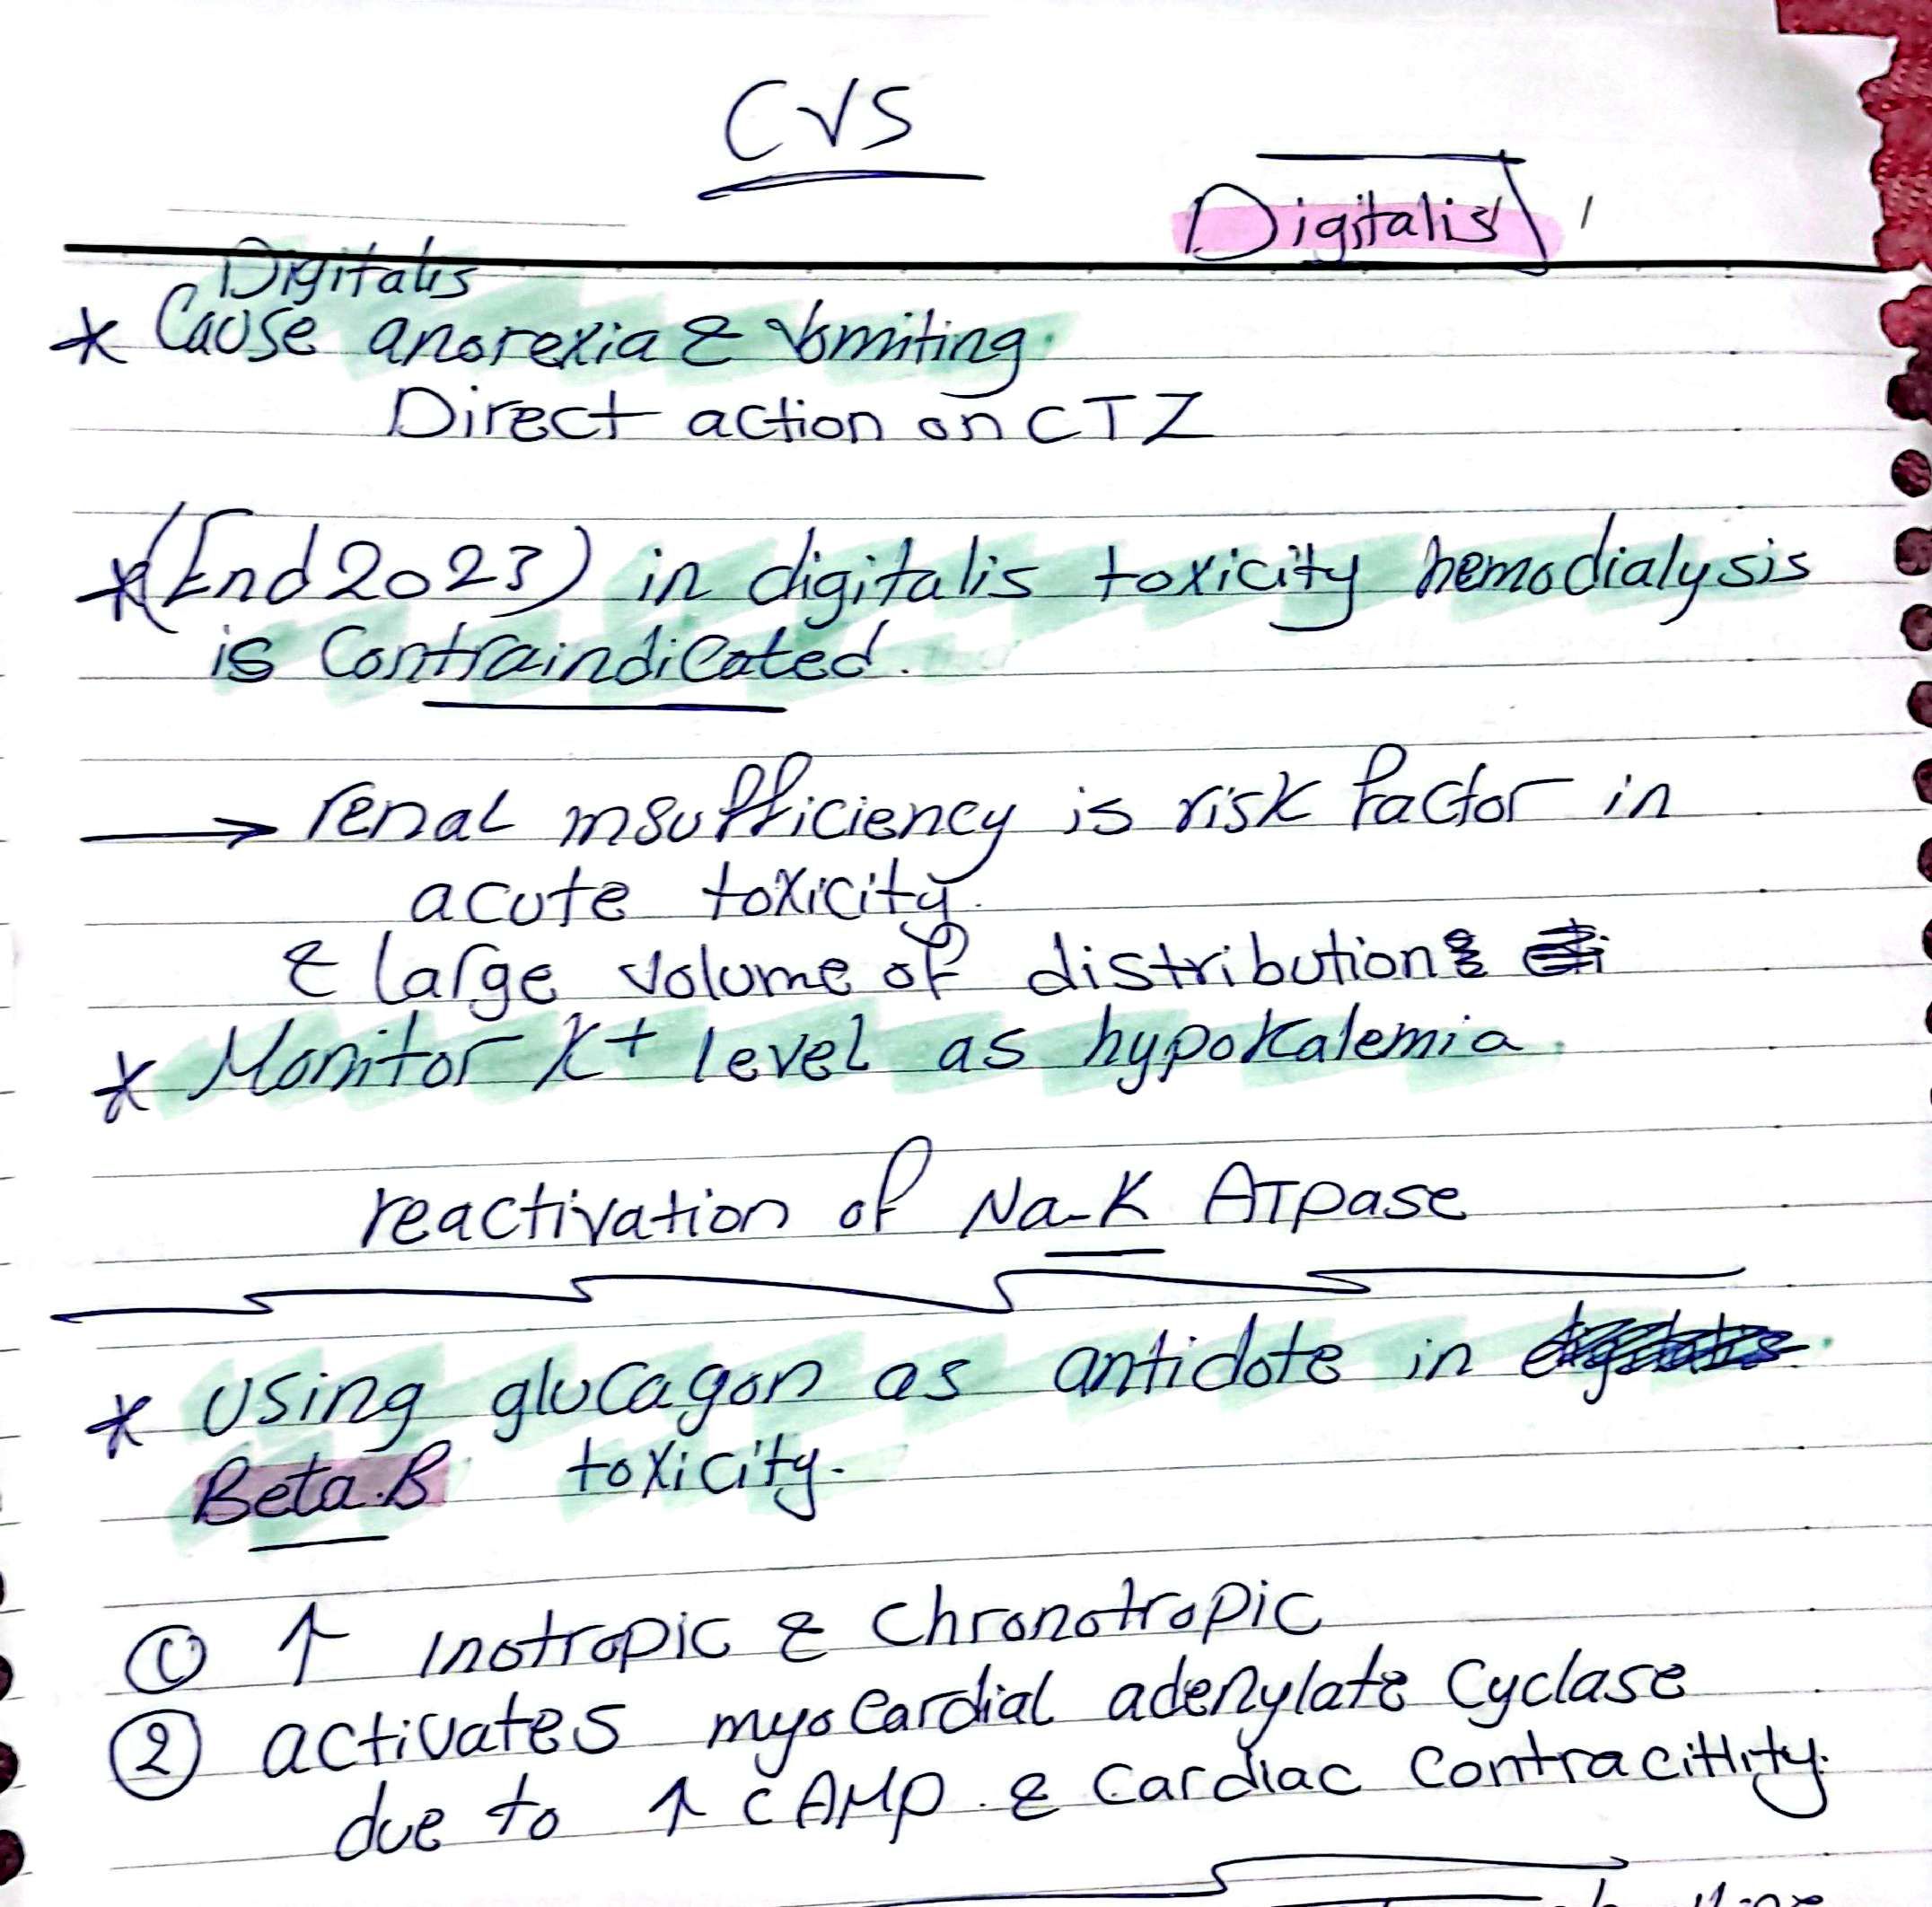 CVS
Digitalis
Digitalis
* Cause anorexia & vomiting.
Direct action on CTZ
*(End 2023) in digitalis toxicity hemodialysis
is Contraindicated.
→ renal insufficiency is risk factor in
acute toxicity.
& large volume of distribution
* Monitor K+ level as hypokalemia.
reactivation of Na-K ATPase
* Using glucagon as antidote in
Beta.B toxicity.
① ↑ inotropic & chronotropic
② activates myocardial adenylate cyclase
due to ↑ cAMP. & cardiac contracitlity.